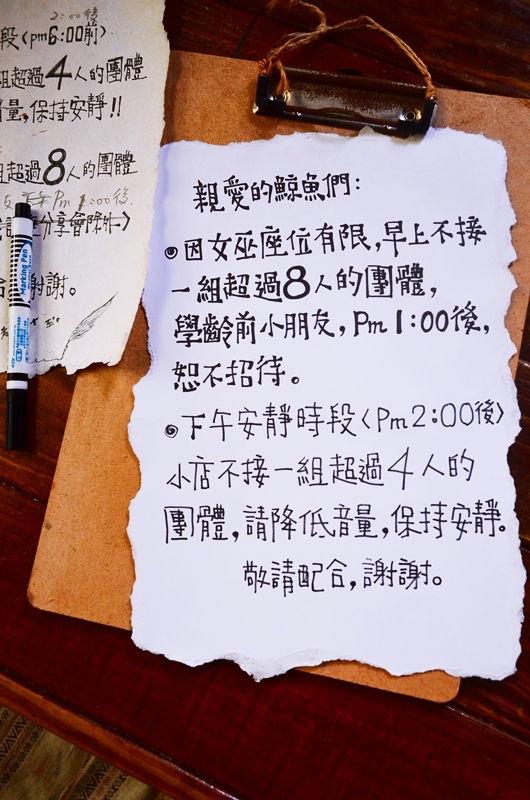 2:00後
段〈pm6:00前〉
組超過4人的團體
音量,保持安靜!!
超過8人的團體
Pm 1:00後,
分享會除外〉
謝謝。
Marking Pen
親愛的鯨魚們:
因女巫座位有限,早上不接
一組超過8人的團體,
學齡前小朋友,Pm 1:00後,
恕不招待。
下午安靜時段〈Pm2:00後〉
小店不接一組超過4人的
團體,請降低音量,保持安靜。
敬請配合,謝謝。